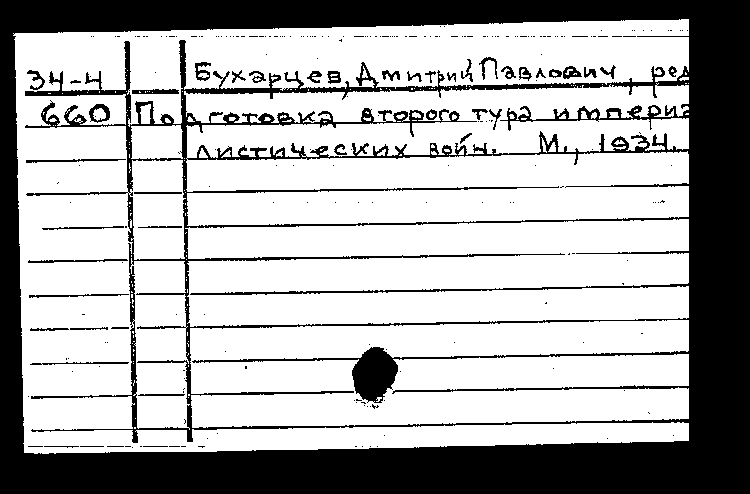 34-4 Бухарцев, Дмитрий Павлович, ред
660 Подготовка второго тура империа
листических войн. М., 1934.